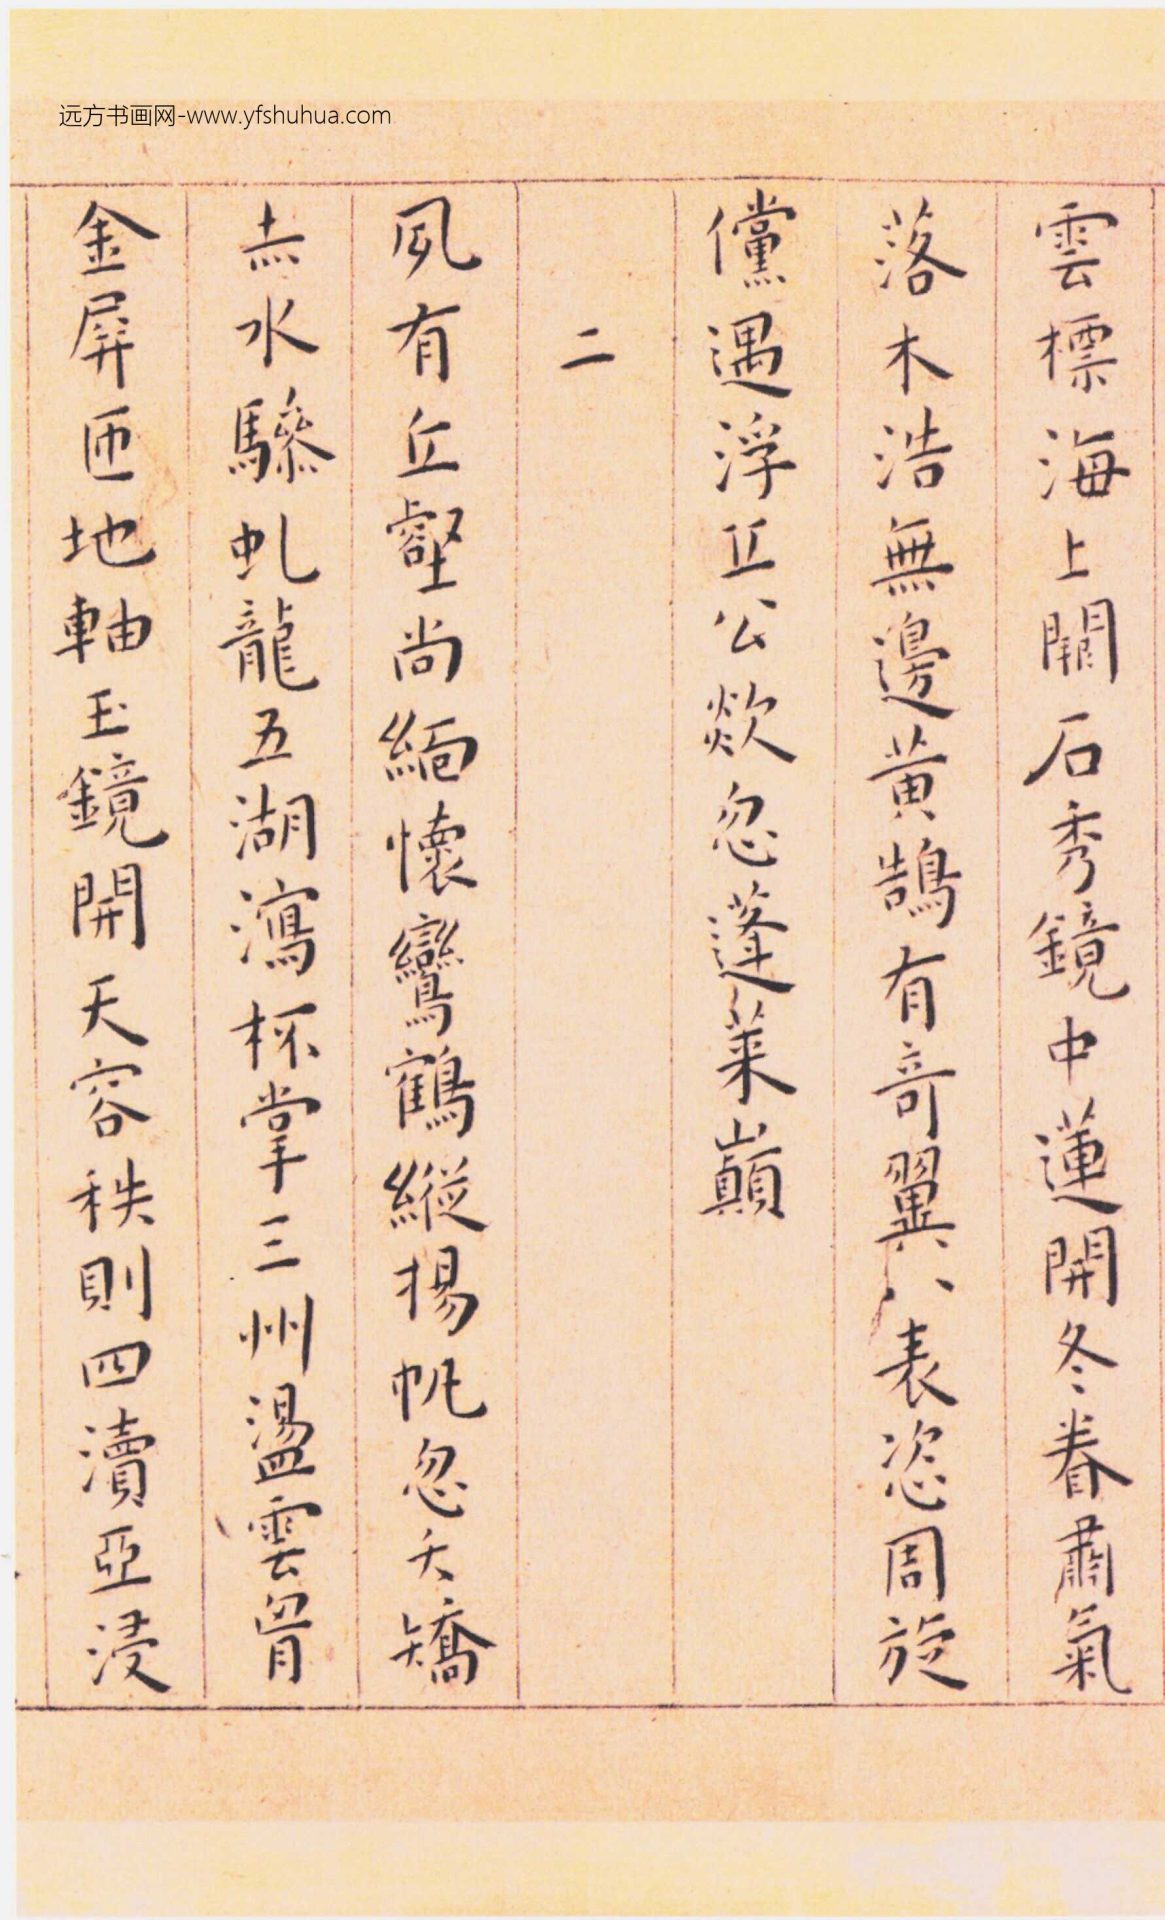 远方书画网-www.yfshuhua.com
雲標海上關石秀鏡中蓮開冬眷肅氣
落木浩無邊黃鵠有奇翼八表恣周旋
儻遇浮丘公歘忽蓬萊巔
二
夙有丘壑尚緬懷鸞鶴縱揚帆忽夭矯
赤水驂虬龍五湖瀉杯掌三州盪雲胷
金屏匝地軸玉鏡開天容秩則四瀆亞浸